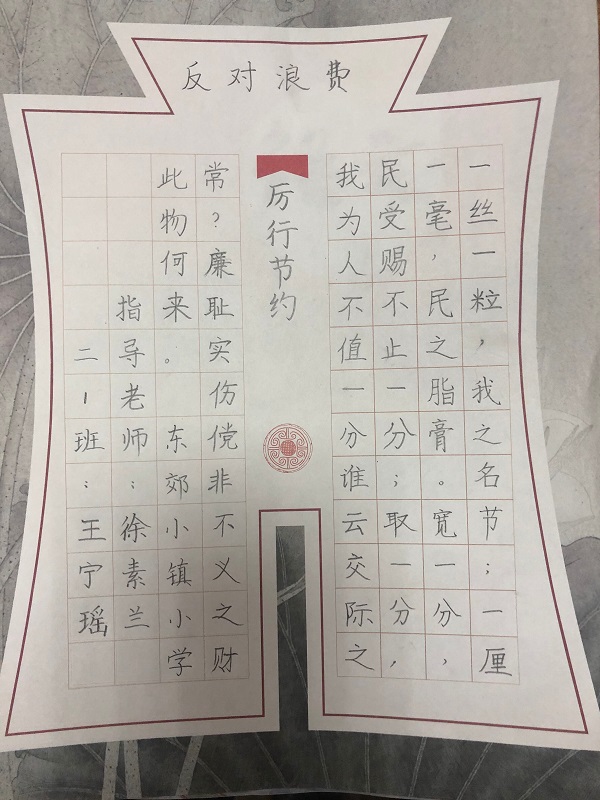 反对浪费
一丝一粒，我之名节；一厘
一毫，民之脂膏。宽一分，
民受赐不止一分；取一分，
我为人不值一分谁云交际之
厉行节约
常？廉耻实伤傥非不义之财
此物何来。 东郊小镇小学
指导老师：徐素兰
二1班：王宁瑶